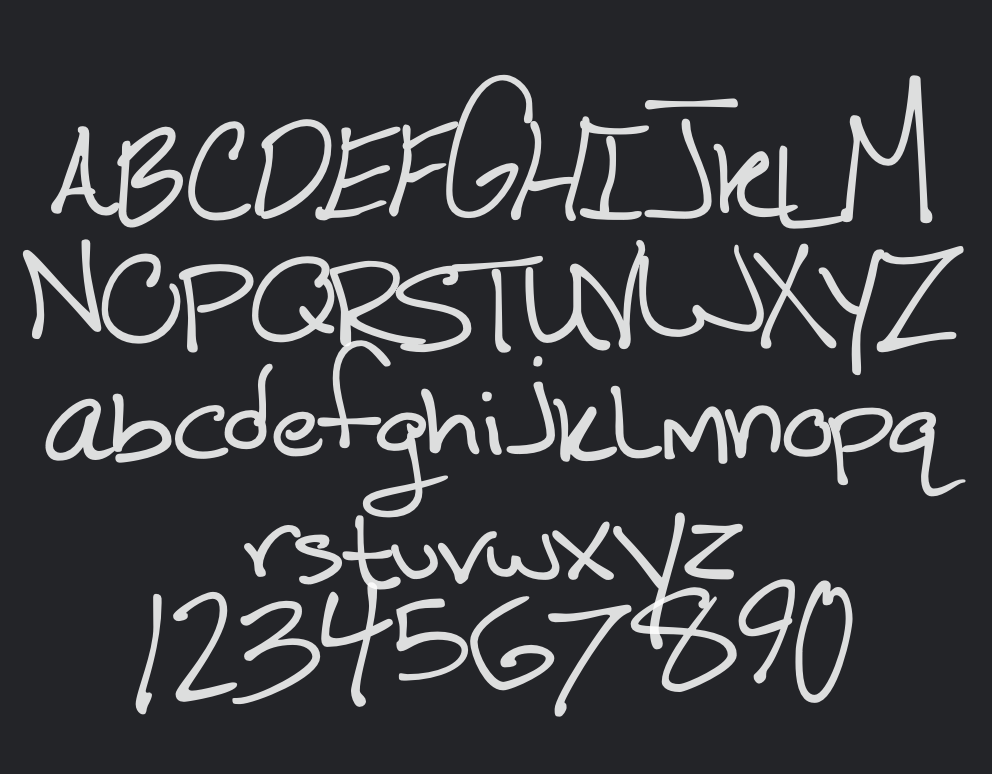 ABCDEFGHIJKLM
NOPQRSTUVWXYZ
abcdefghijklmnopq
rstuvwxyz
1234567890